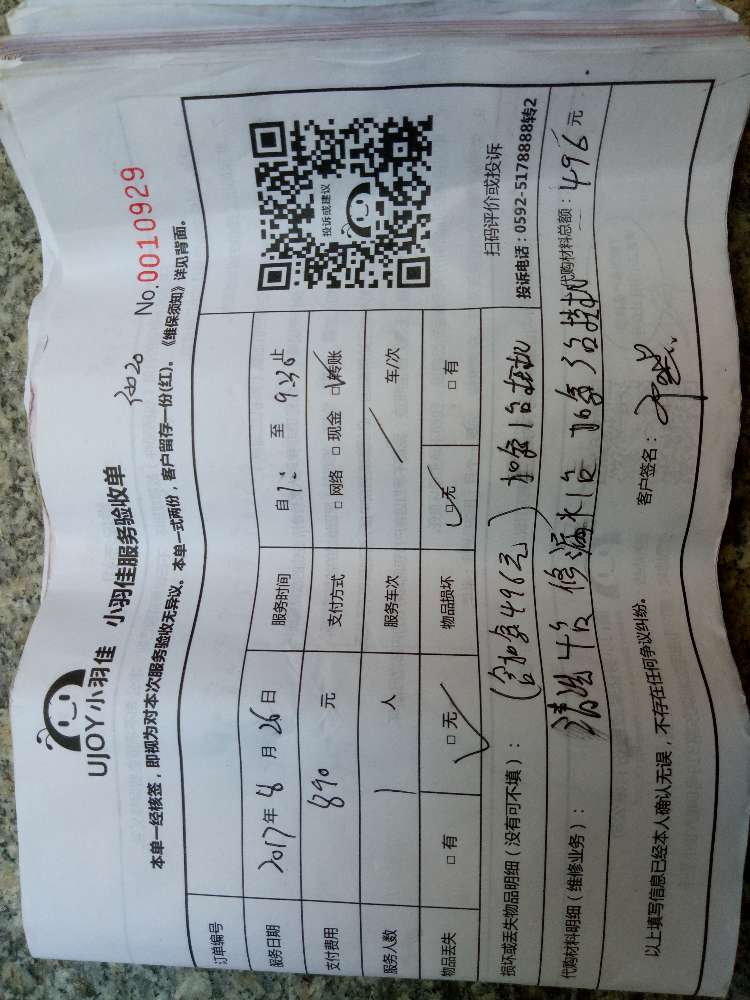 UJOY小羽佳 小羽佳服务验收单
No.0010929
本单一经核签，即视为对本次服务验收无异议。本单一式两份，客户留存一份(红)。《维保须知》详见背面。
订单编号
服务日期 2017年8月26日 服务时间 自 至 9:36止
支付费用 890 元 支付方式 □网络 □现金 ☑转账
服务人数 1 人 服务车次 / 车/次
物品丢失 □有 ☑无 物品损坏 ☑无 □有
投诉或建议
扫码评价或投诉
投诉电话：0592-5178888转2
损坏或丢失物品明细（没有可不填）： (含加氟496元) 加氟1台挂机
代购材料明细（维修业务）： 清洗4台 修漏水1台 加氟 台挂机 代购材料总额：496元
以上填写信息已经本人确认无误，不存在任何争议纠纷。 客户签名：